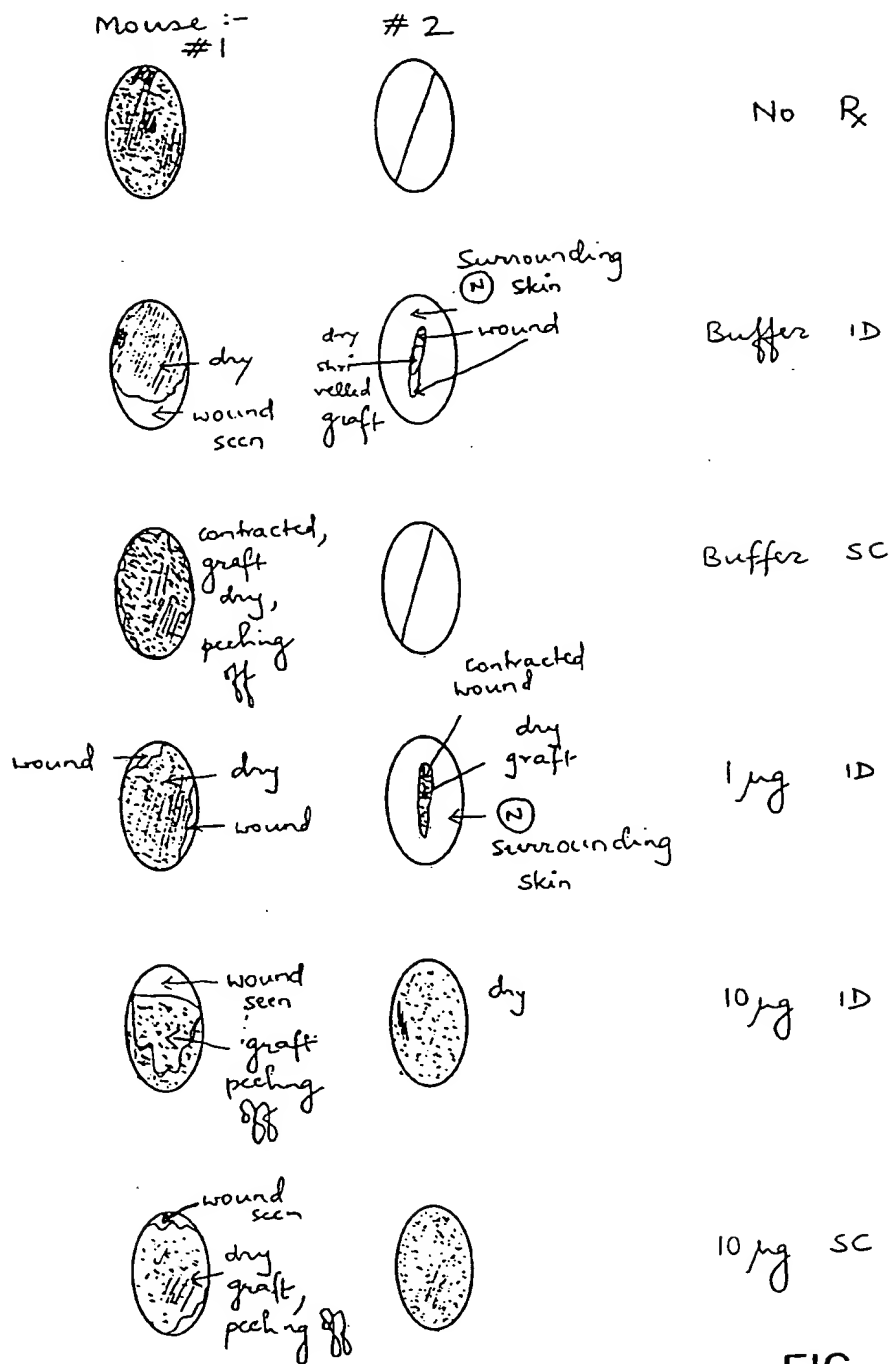 Mouse :-
#1
# 2
No Rx
Surrounding
(N) skin
dry
wound
seen
dry
shri
velled
graft
wound
Buffer ID
contracted,
graft
dry,
peeling
off
Buffer SC
wound
dry
wound
contracted
wound
dry
graft
(N)
surrounding
skin
1 µg ID
wound
seen
graft
peeling
off
dry
10 µg ID
wound
seen
dry
graft,
peeling off
10 µg SC
FIG